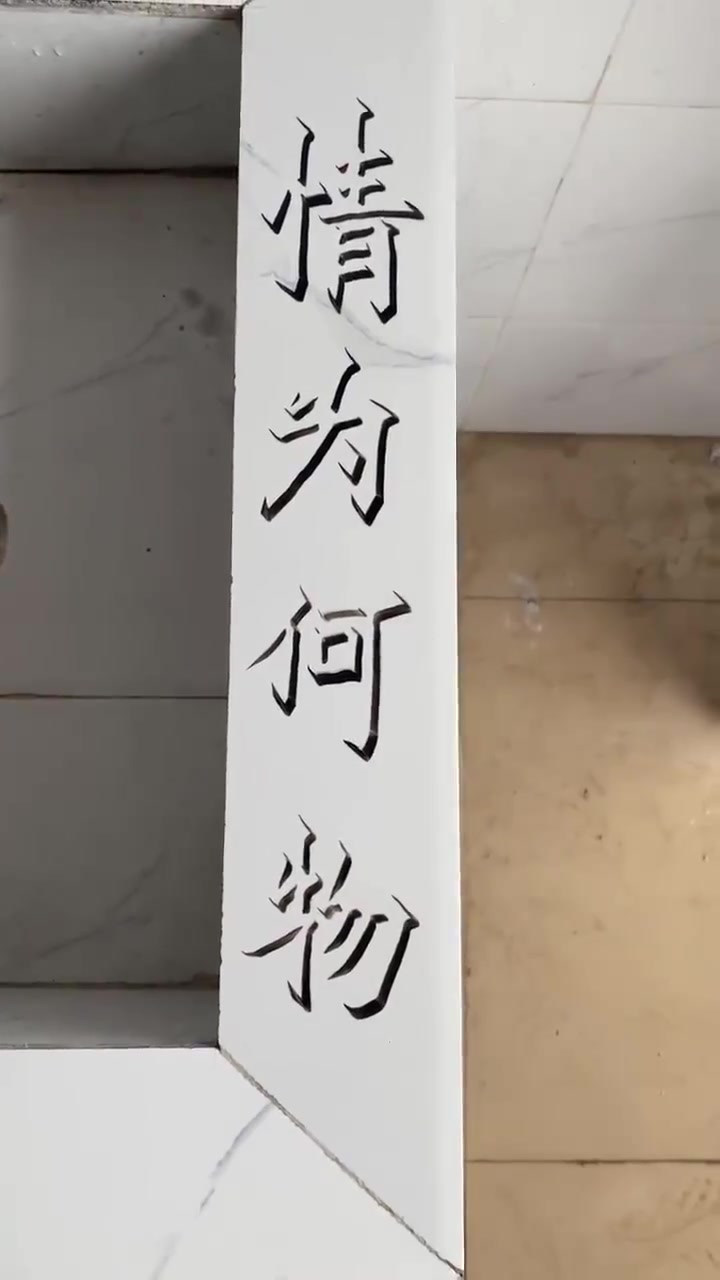 情为何物